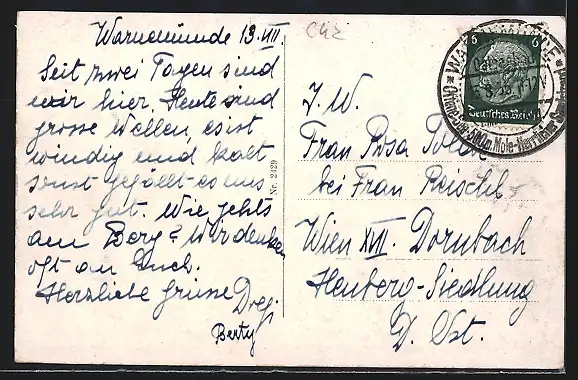 Warnemünde 13. VII.
Seit zwei Tagen sind
wir hier. Heute sind
grosse Wellen, es ist
windig und kalt
sonst gefällt es uns
sehr gut. Wie gehts
am Berg? Wir denken
oft an Euch.
Herzliche Grüsse
Berty
Nr. 2429
6 6
Deutsches Reich
I. W.
Frau Rosa
bei Frau Reischl
Wien XVII. Dornbach
Heuberg-Siedlung
D. Öst.